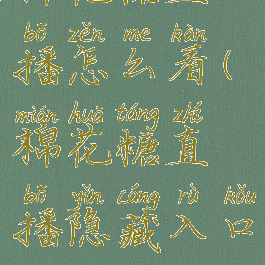 bō zěn me kàn
播怎么看(
mián huā táng zhí
棉花糖直
bō yǐn cáng rù kǒu
播隐藏入口